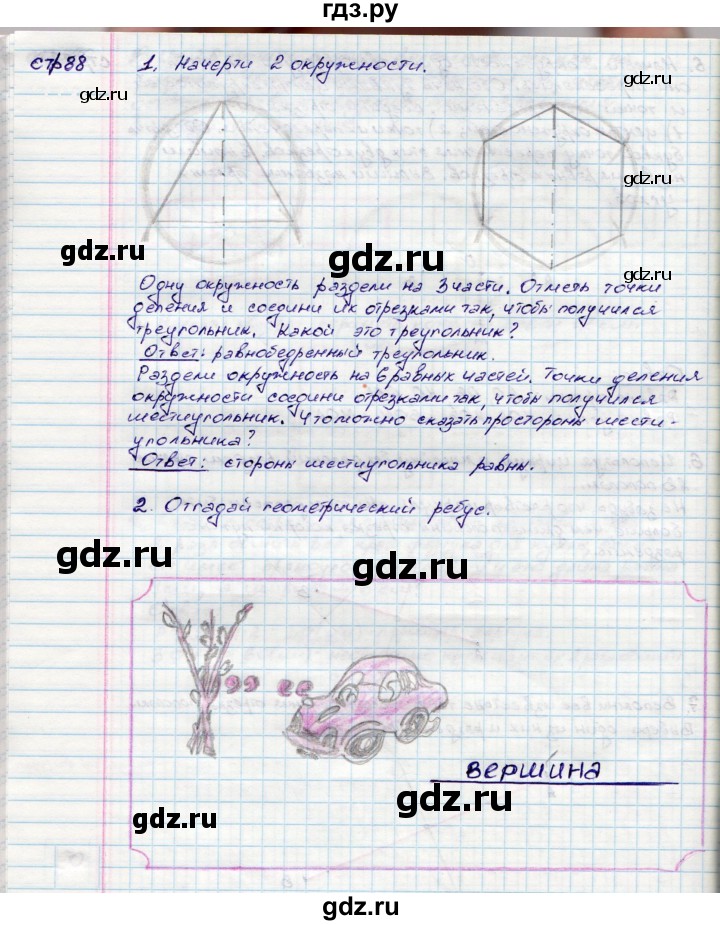 гдз.ру
стр88 1. Начерти 2 окружности.
gdz.ru
gdz.ru
gdz.ru
gdz.ru
gdz.ru
gdz.ru
Одну окружность раздели на 3 части. Отметь точки
деления и соедини их отрезками так, чтобы получился
треугольник. Какой это треугольник?
Ответ: равнобедренный треугольник.
gdz.ru
gdz.ru
Раздели окружность на 6 равных частей. Точки деления
окружности соедини отрезками так, чтобы получился
шестиугольник. Что можно сказать про стороны шести-
угольника?
Ответ: стороны шестиугольника равны.
2. Отгадай геометрический ребус.
gdz.ru
gdz.ru
вершина
gdz.ru
gdz.ru
gdz.ru